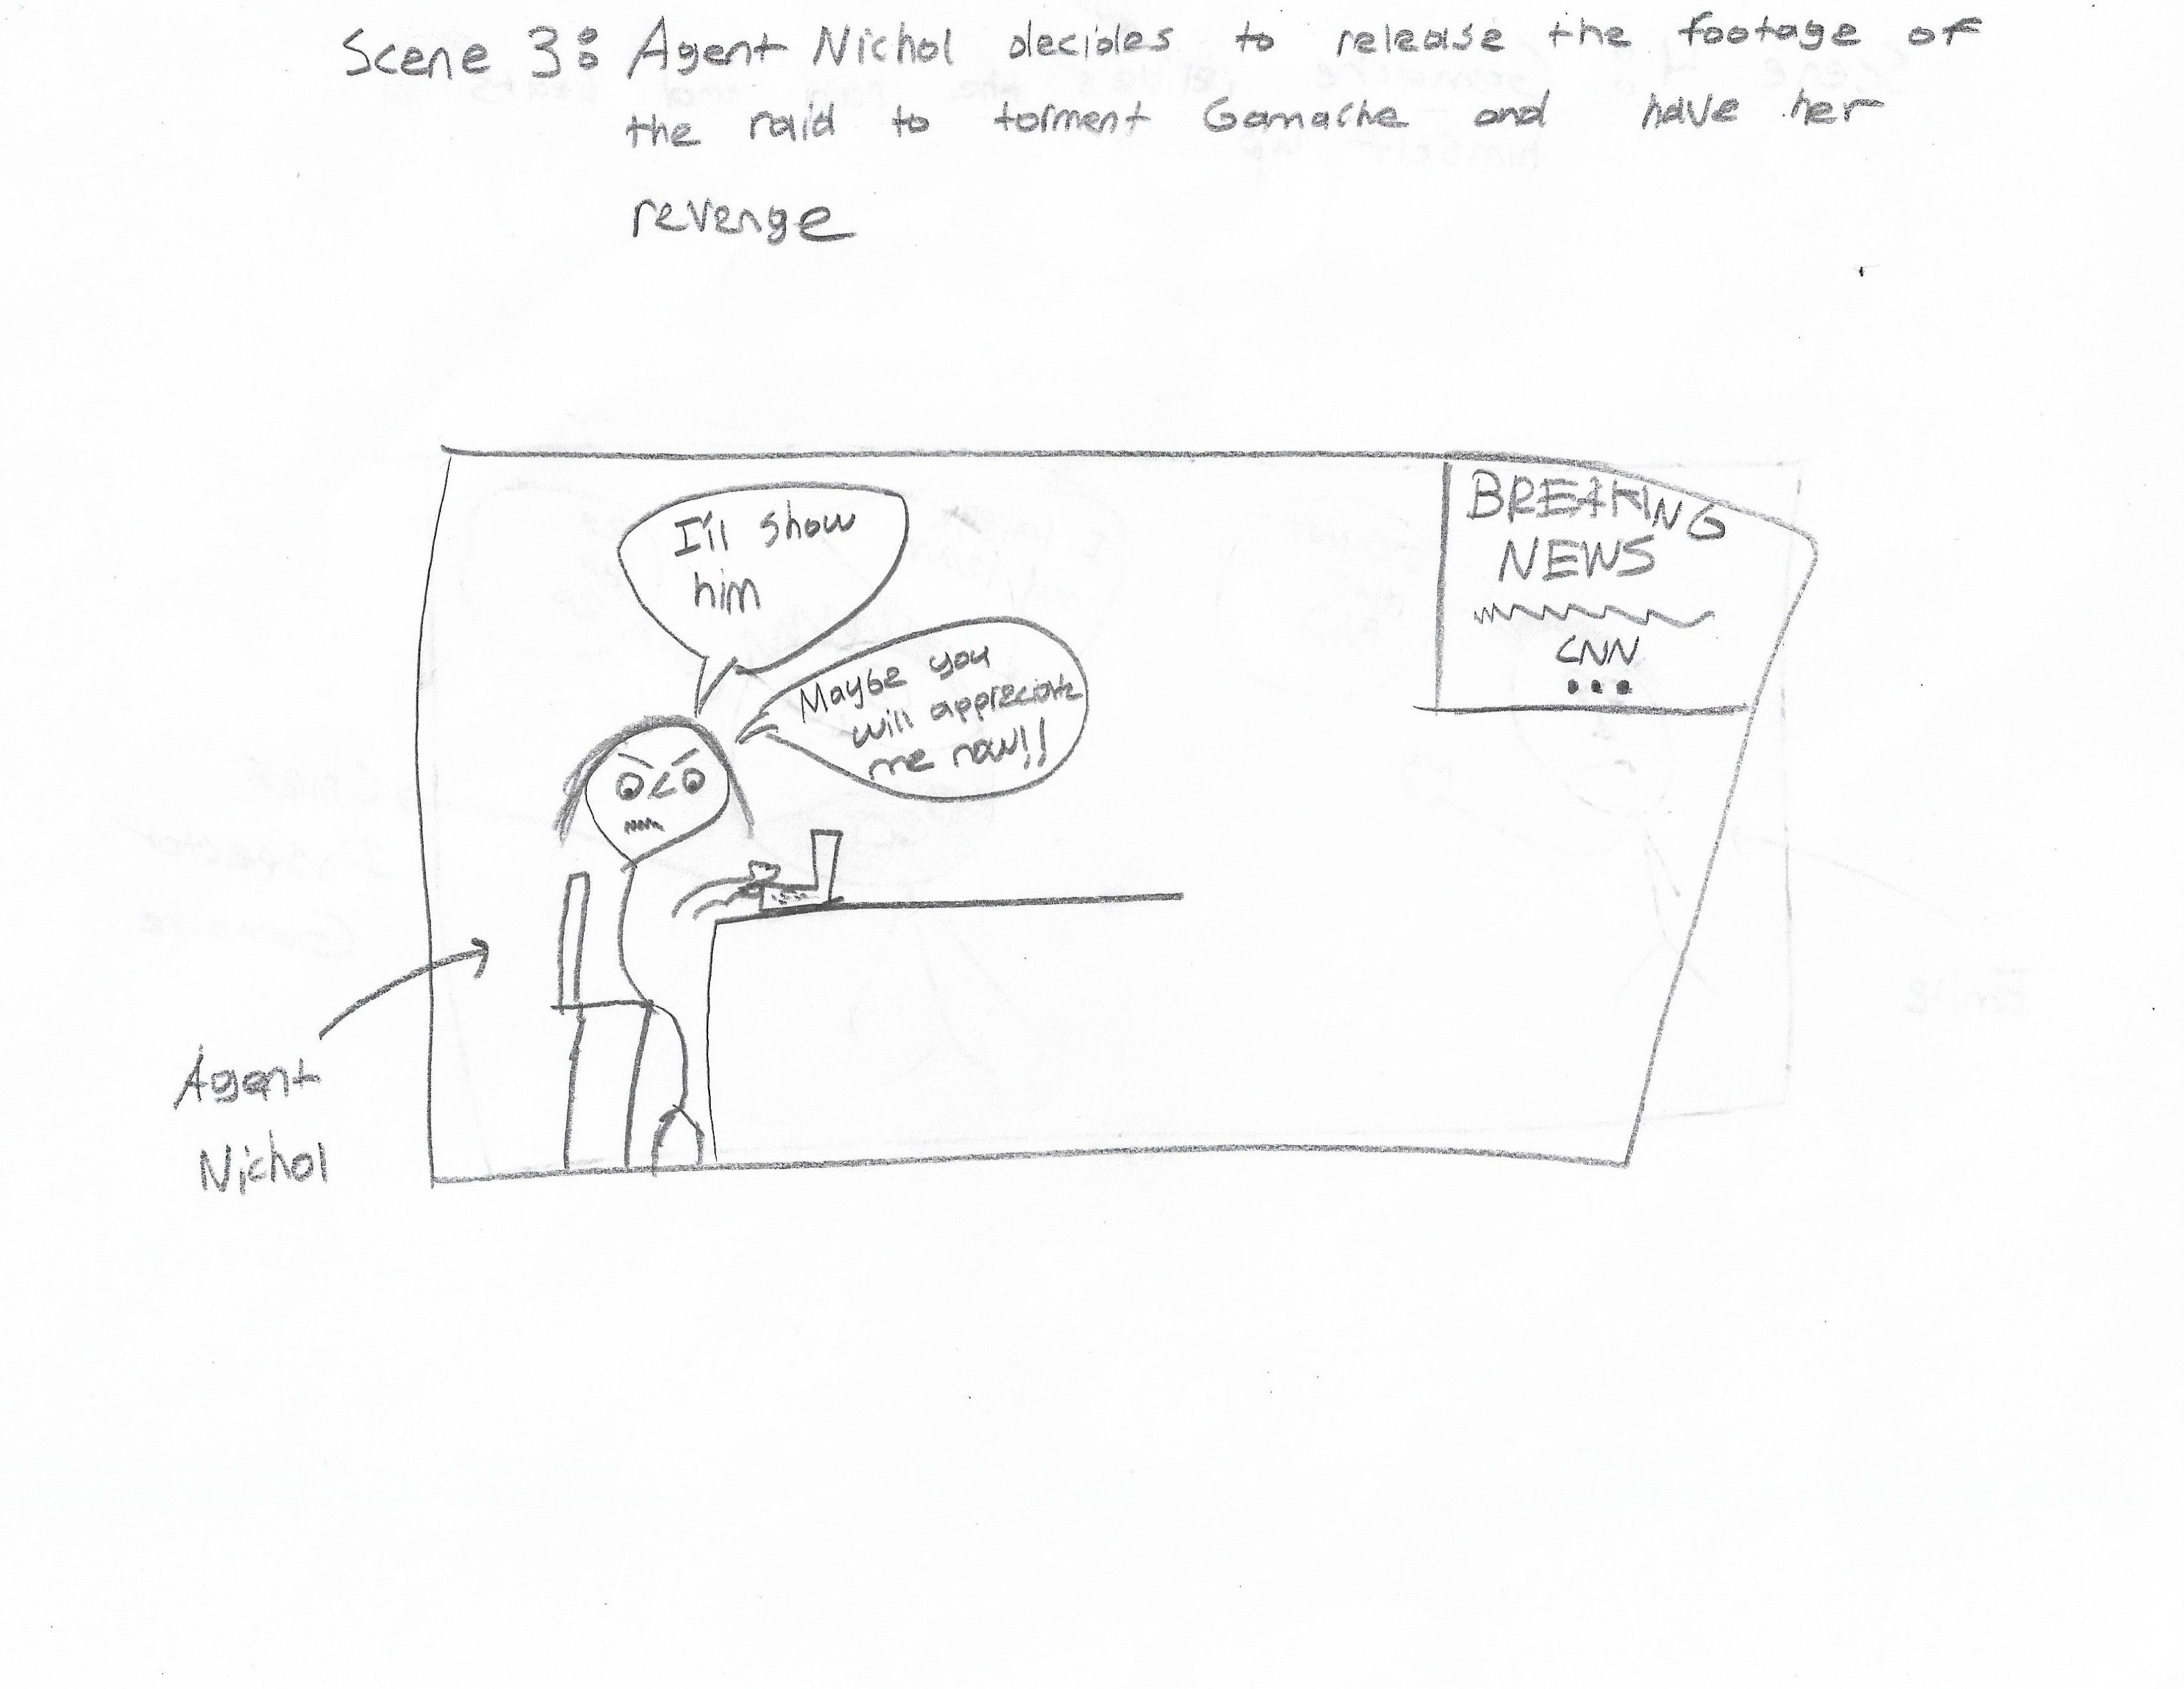 Scene 3: Agent Nichol decides to release the footage of
the raid to torment Gamache and have her
revenge
I'll show
him
Maybe you
will appreciate
me now!!
BREAKING
NEWS
CNN
...
Agent
Nichol